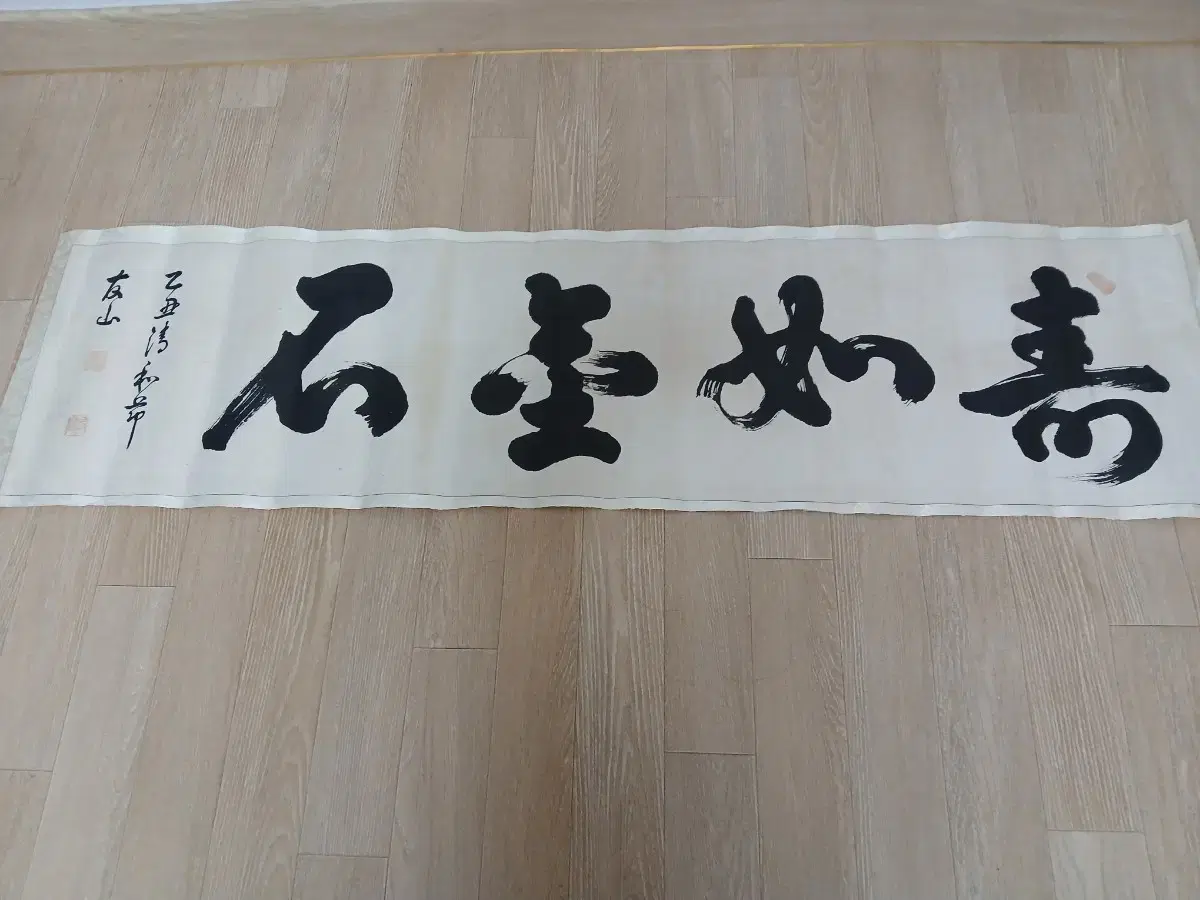 壽如金石
乙丑清和節
友山